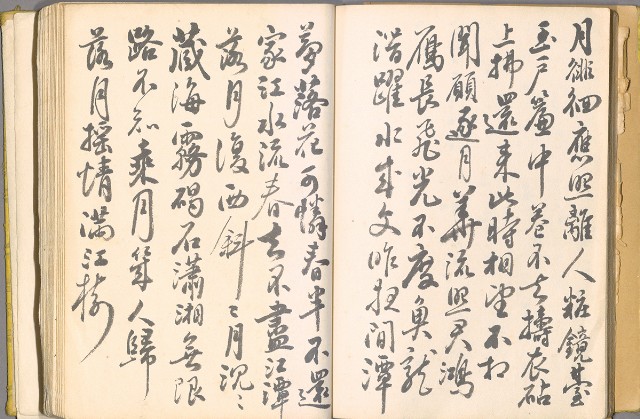 月徘徊應照離人粧鏡臺
玉戶簾中卷不去擣衣砧
上拂還來此時相望不相
聞願逐月華流照君鴻
鴈長飛光不度魚龍
潛躍水成文昨夜閒潭
夢落花可憐春半不還
家江水流春去不盡江潭
落月復西斜〻月沉〻
藏海霧碣石瀟湘無限
路不知乘月幾人歸
落月搖情滿江樹